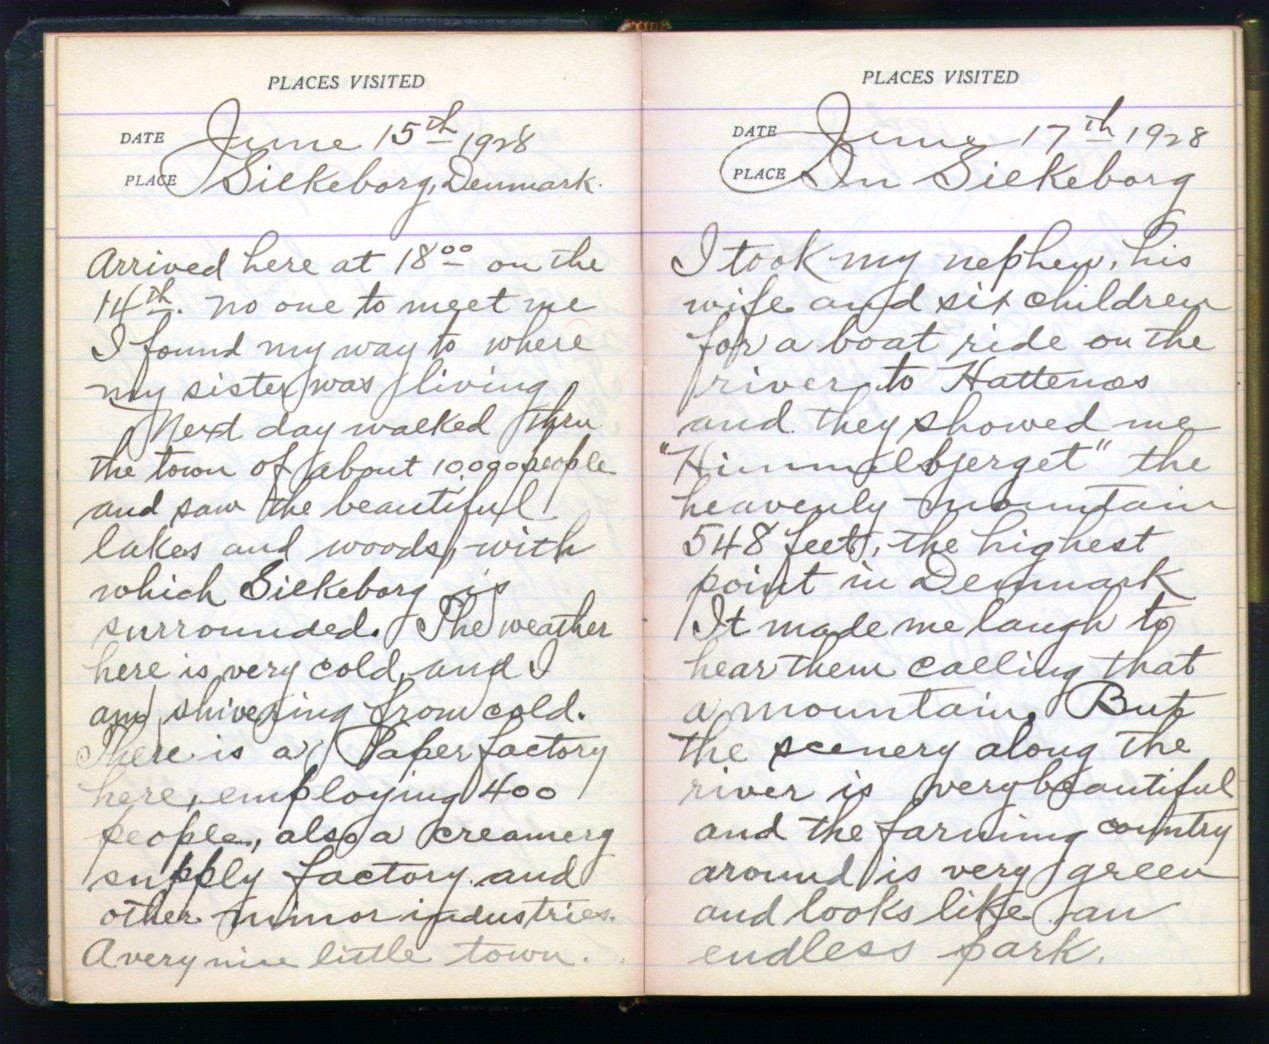 PLACES VISITED
DATE June 15th 1928
PLACE Silkeborg, Denmark.
Arrived here at 18 00 on the
14th. no one to meet me
I found my way to where
my sister was living
Next day walked thru
the town of about 10000 people
and saw the beautiful
lakes and woods, with
which Silkeborg is
surrounded. The weather
here is very cold, and I
am shivering from cold.
There is a Paper factory
here, employing 400
people, also a creamery
supply factory and
other minor industries.
A very nice little town.
PLACES VISITED
DATE June 17th 1928
PLACE In Silkeborg
I took my nephew, his
wife and six children
for a boat ride on the
river to Hattenæs
and they showed me
"Himmelbjerget" the
heavenly mountain
548 feet, the highest
point in Denmark
It made me laugh to
hear them calling that
a mountain. But
the scenery along the
river is very beautiful
and the farming country
around is very green
and looks like an
endless park.